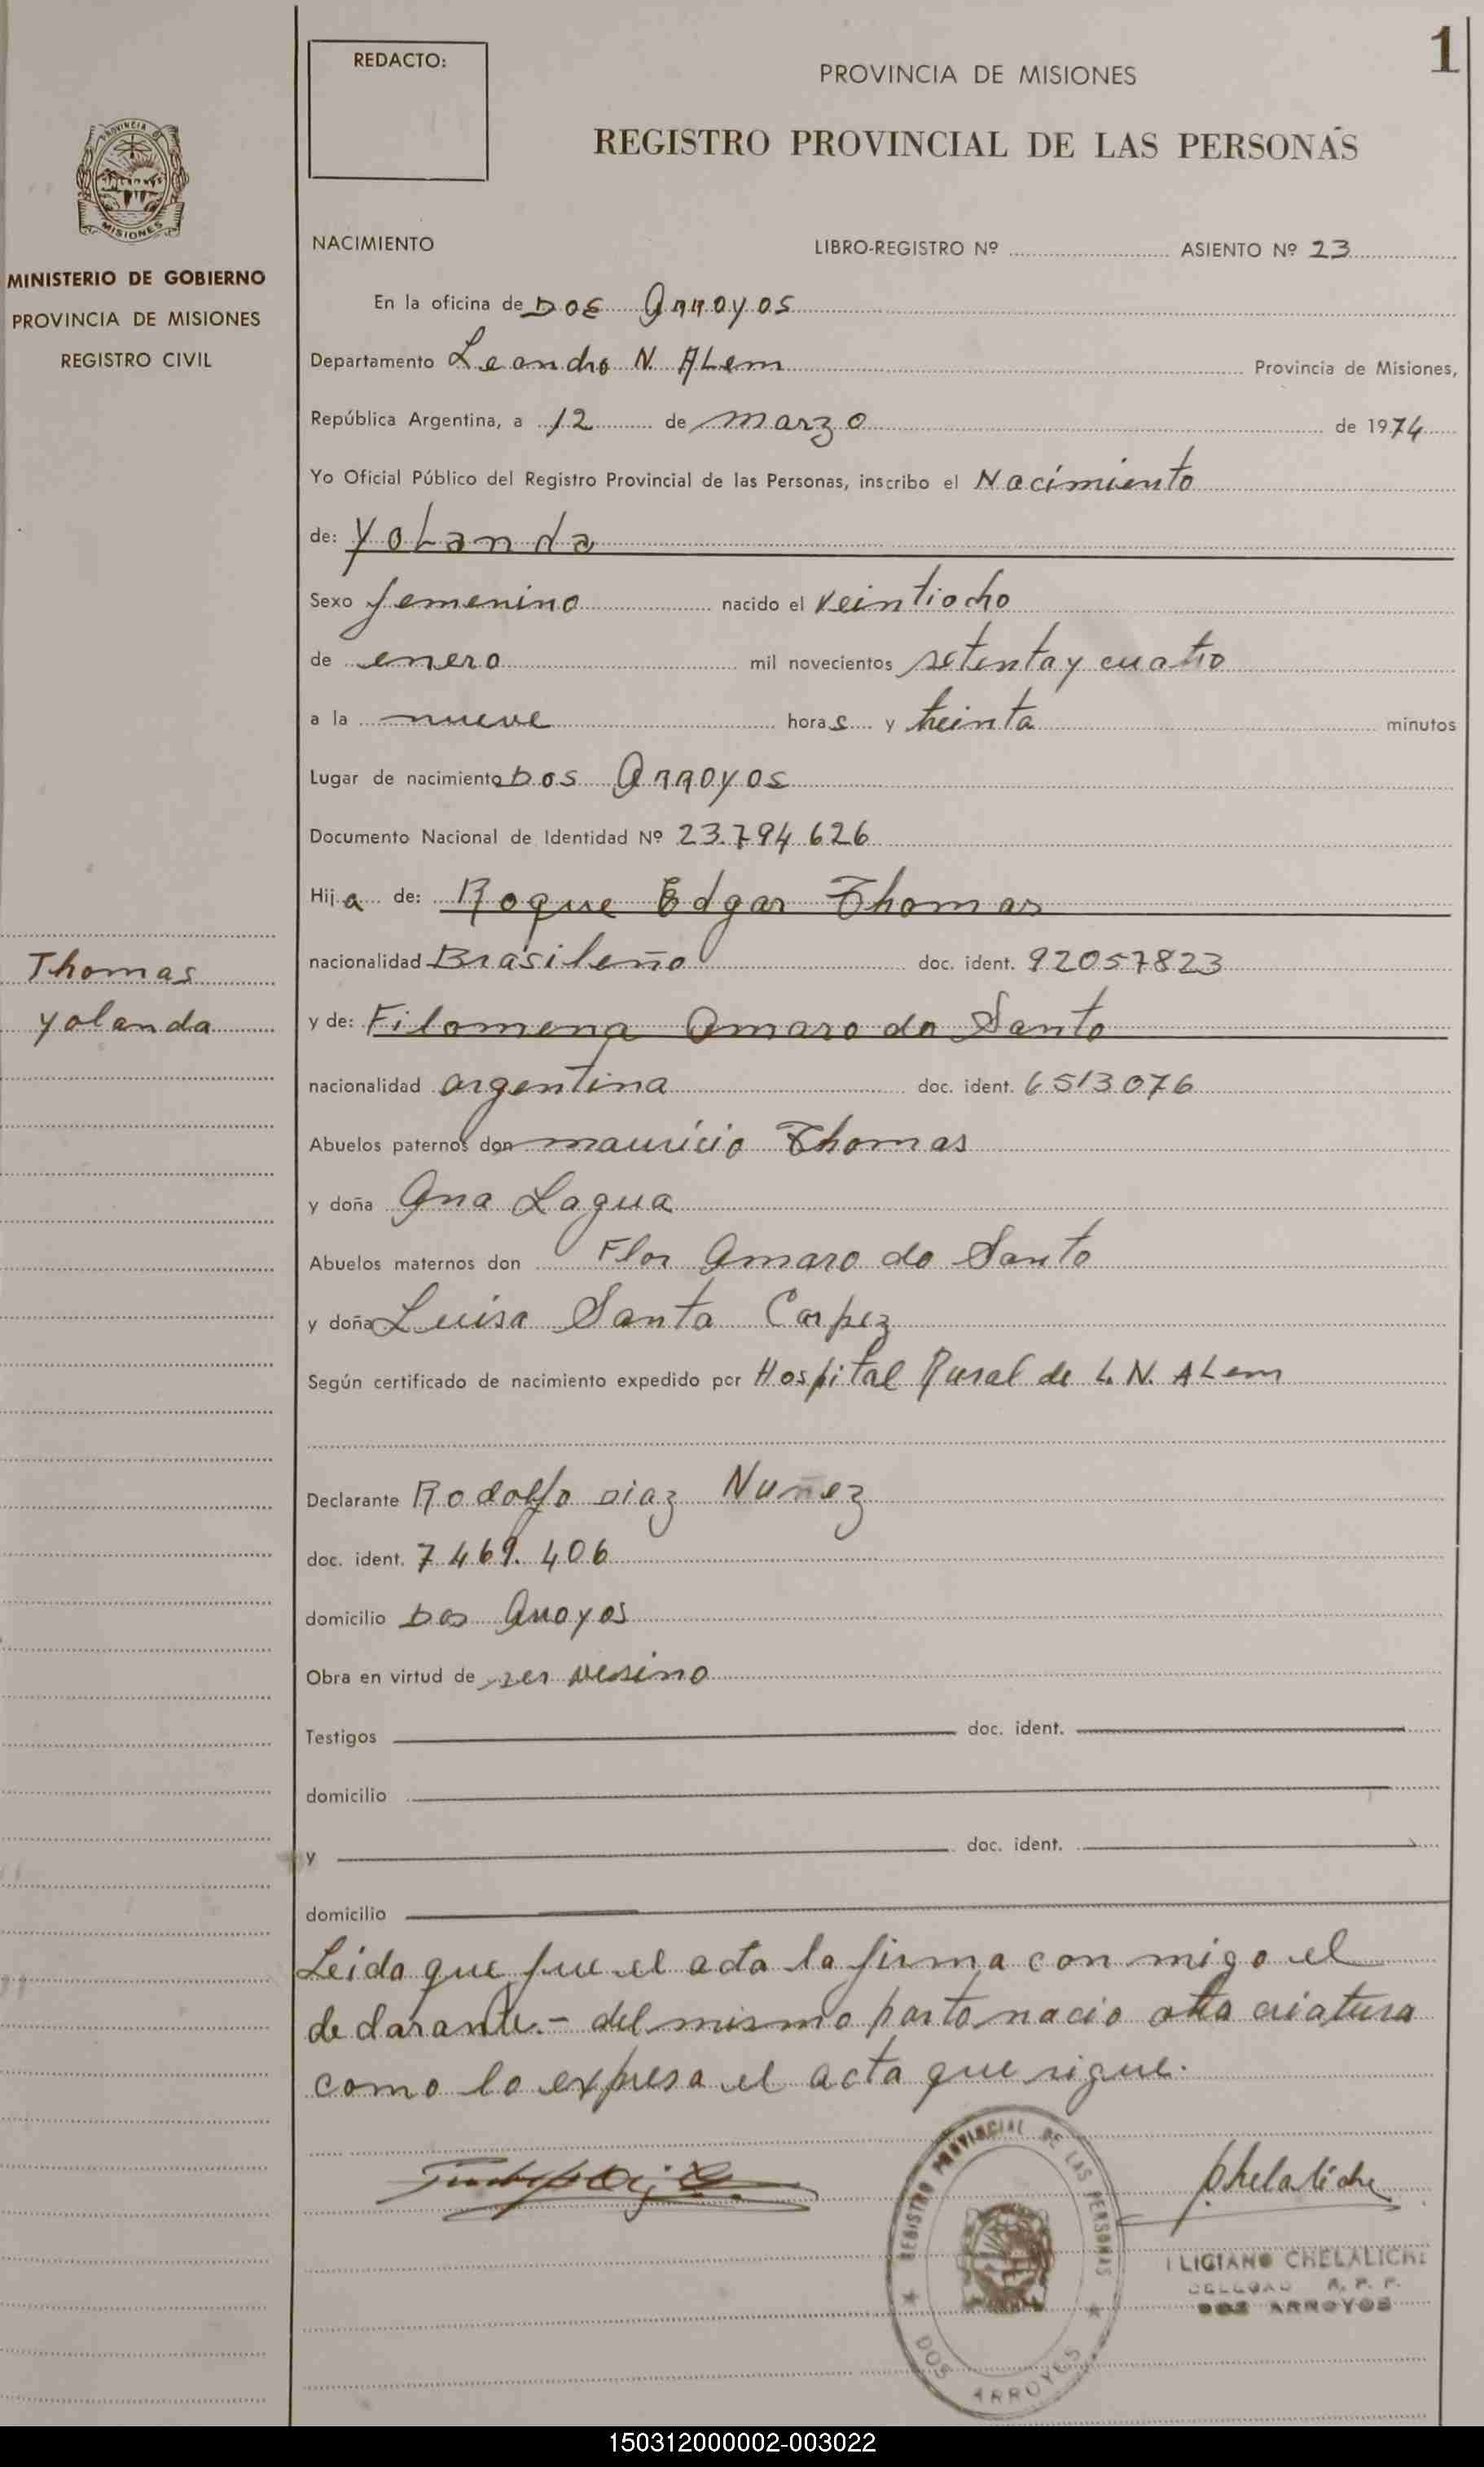 1
REDACTO:
PROVINCIA DE MISIONES
REGISTRO PROVINCIAL DE LAS PERSONAS
PROVINCIA DE
MISIONES
MINISTERIO DE GOBIERNO
PROVINCIA DE MISIONES
REGISTRO CIVIL
NACIMIENTO LIBRO-REGISTRO Nº ASIENTO Nº 23
En la oficina de Dos Arroyos
Departamento Leandro N. ALem Provincia de Misiones,
República Argentina, a 12 de marzo de 1974
Yo Oficial Público del Registro Provincial de las Personas, inscribo el Nacimiento
de: YoLanda
Sexo femenino nacido el veintiocho
de enero mil novecientos setenta y cuatro
a la nueve horas y treinta minutos
Lugar de nacimiento Dos Arroyos
Documento Nacional de Identidad Nº 23.794.626
Hija de: Roque Edgar Thomas
nacionalidad Brasileño doc. ident. 92057823
Thomas
Yolanda
y de: Filomena Amaro do Santo
nacionalidad argentina doc. ident. 6513076
Abuelos paternos don mauricio Thomas
y doña Ana Lagua
Abuelos maternos don Flor Amaro do Santo
y doña Luisa Santa Carpez
Según certificado de nacimiento expedido por Hospital Rural de L. N. ALem
Declarante Rodolfo Diaz Nuñez
doc. ident. 7.469.406
domicilio Dos Arroyos
Obra en virtud de ser vesino
Testigos doc. ident.
domicilio
y doc. ident.
domicilio
Leida que fue el acta la firma con migo el
declarante.- del mismo parto nacio otra criatura
como lo expresa el acta que sigue.
REGISTRO PROVINCIAL DE LAS PERSONAS
DOS ARROYOS
Chelaliche
CHELALICHE
R. P. P.
DOS ARROYOS
150312000002-003022